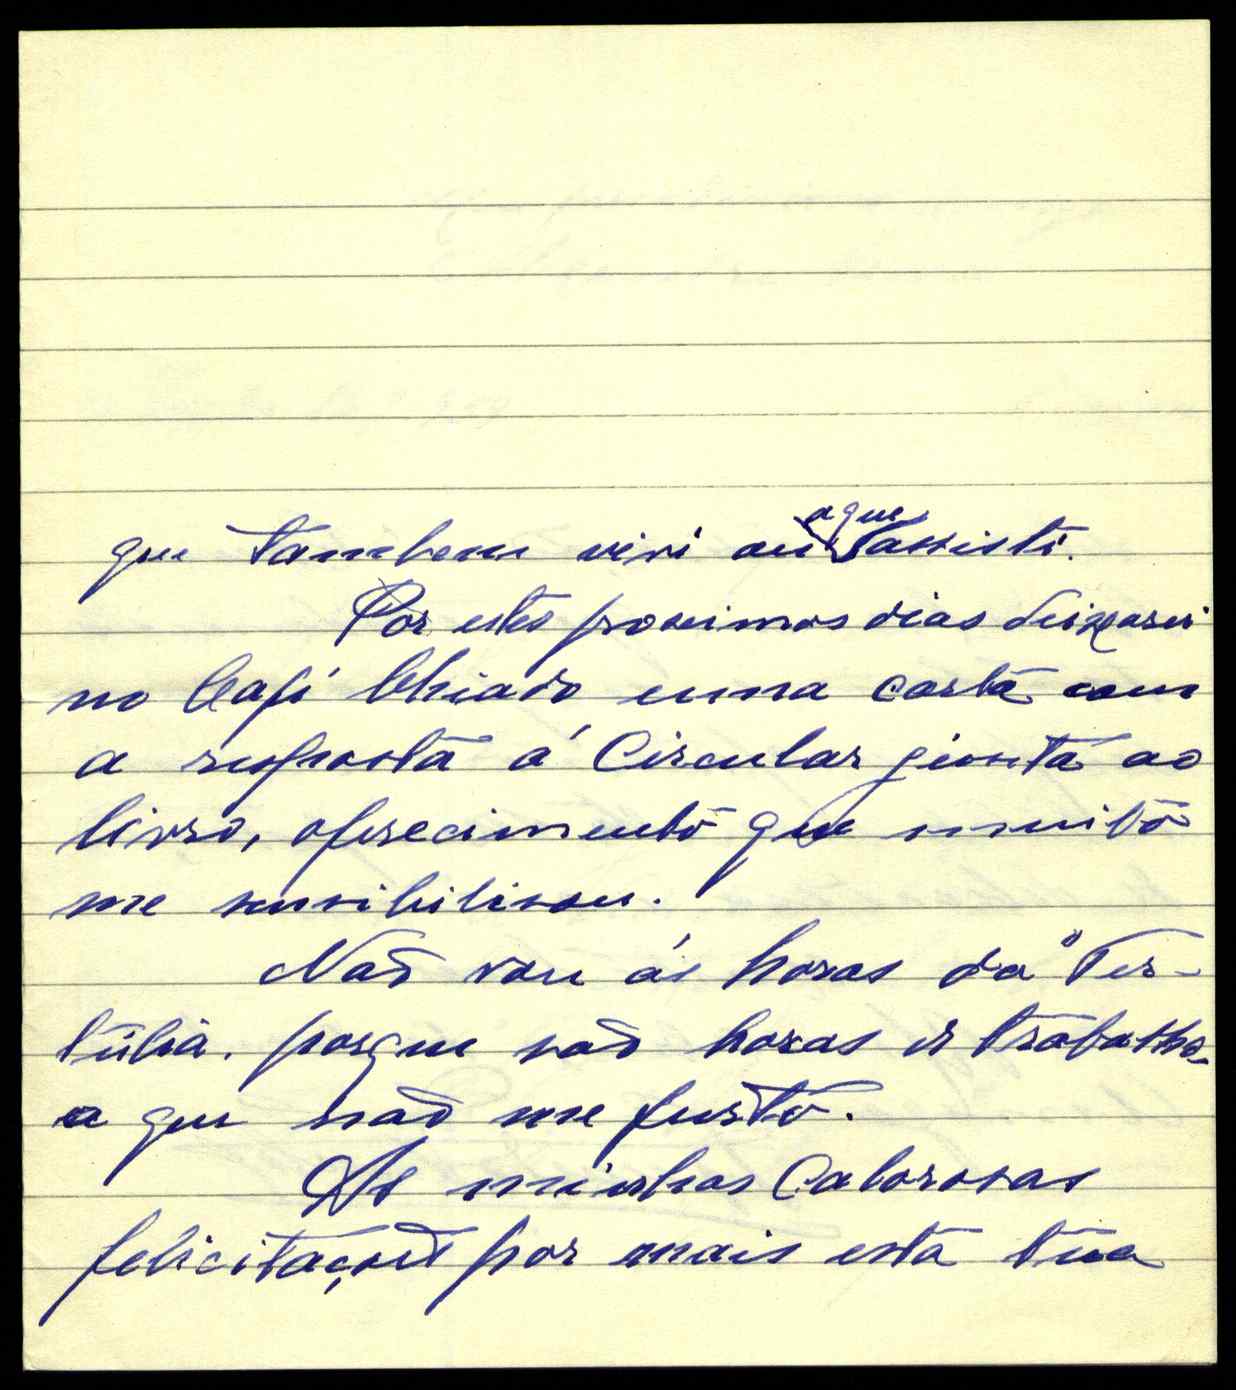 que tambem vivi ou a que assisti.
Por estes proximos dias deixarei
no Café Chiado uma carta com
a resposta á Circular junta ao
livro, oferecimento que muito
me sensibilisou.
Não vou ás horas da "Ter-
túlia. porque são horas de trabalho
a que não me furto.
As minhas Calorosas
felicitações por mais esta tua